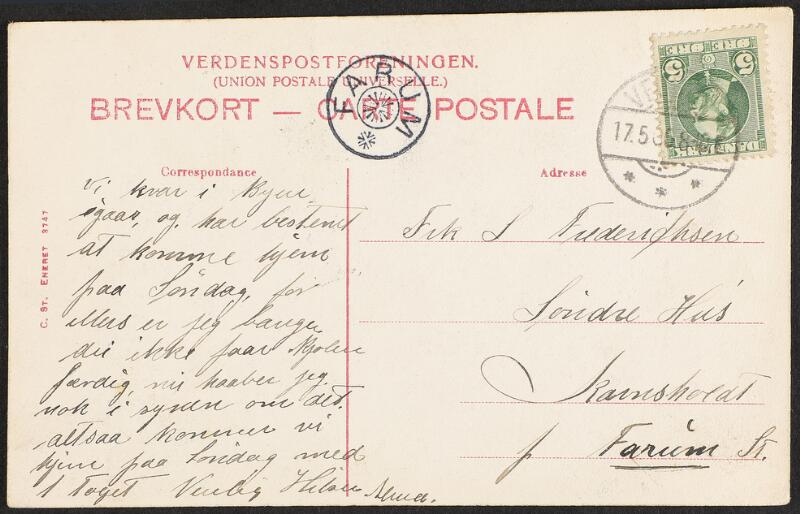 VERDENSPOSTFORENINGEN.
(UNION POSTALE UNIVERSELLE.)
BREVKORT — CARTE POSTALE
FARUM
17.5
DANMARK
5 ØRE ØRE 5
Correspondance
Adresse
C. ST. ENERET 3747
Vi kvar i Byen
igaar, og har bestemt
at komme hjem
paa Søndag, for
ellers er jeg bange
du ikke faar Kjolen
færdig nu haaber jeg
nok i synen om det.
altsaa kommer vi
hjem paa Søndag med
1 Toget Venlig Hilsen
Frk S Frederiksen
Søndre Hus
Kamsholdt
p Farum St.